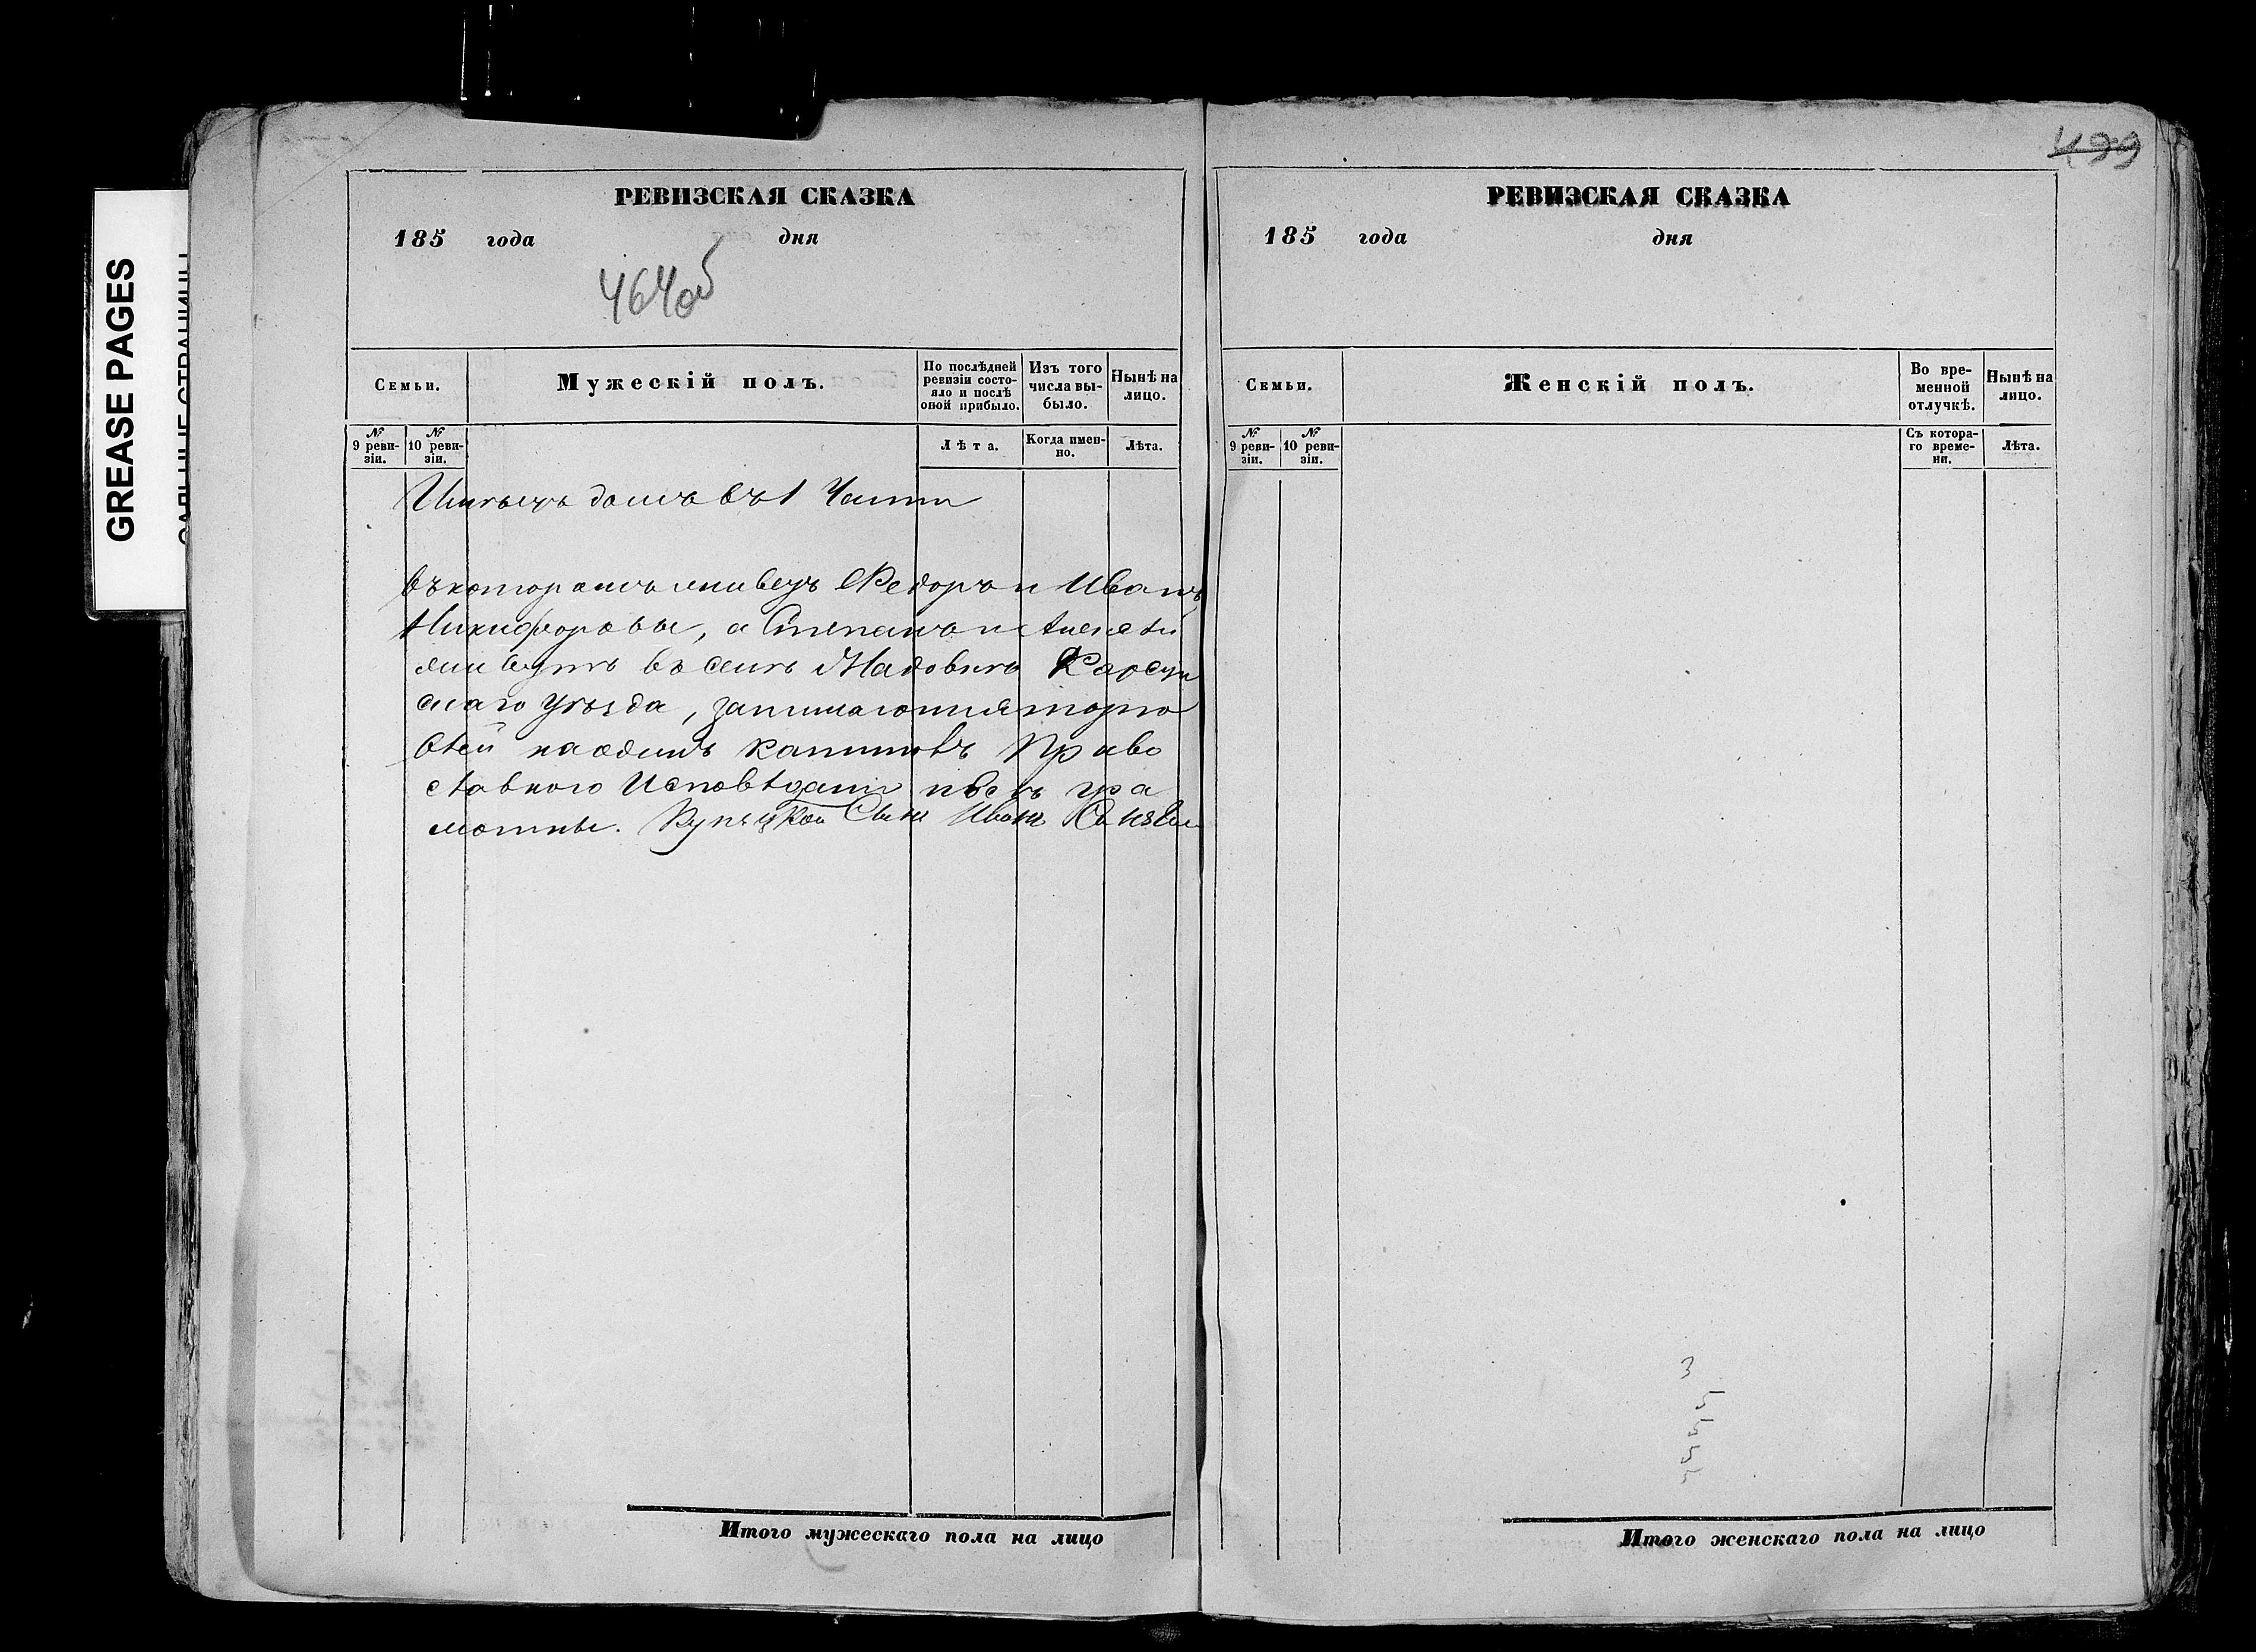 499
GREASE PAGES
РЕВИЗСКАЯ СКАЗКА
185 года дня
464об
Семьи.
Мужескій полъ.
По послѣдней ревизіи состо-
яло и послѣ оной прибыло.
Изъ того числа вы-
было.
Нынѣ на лицо.
№ 9 реви-
зіи.
№ 10 реви-
зіи.
Лѣта.
Когда имен-
но.
Лѣта.
Имѣетъ домъ въ 1 Части
въ которомъ живетъ Федоръ и Иванъ
Никифоровы, а Степанъ и Алексѣй
живутъ въ селѣ Карсун
скаго уѣзда, занимаются торго
влей на одинъ капиталъ Право
славного Исповѣданія всѣ гра
мотны. Купецкой Сынъ Иванъ
Итого мужескаго пола на лицо
РЕВИЗСКАЯ СКАЗКА
185 года дня
Семьи.
Женскій полъ.
Во вре-
менной
отлучкѣ.
Нынѣ на
лицо.
№ 9 реви-
зіи.
№ 10 реви-
зіи.
Съ котора-
го време-
ни.
Лѣта.
Итого женскаго пола на лицо